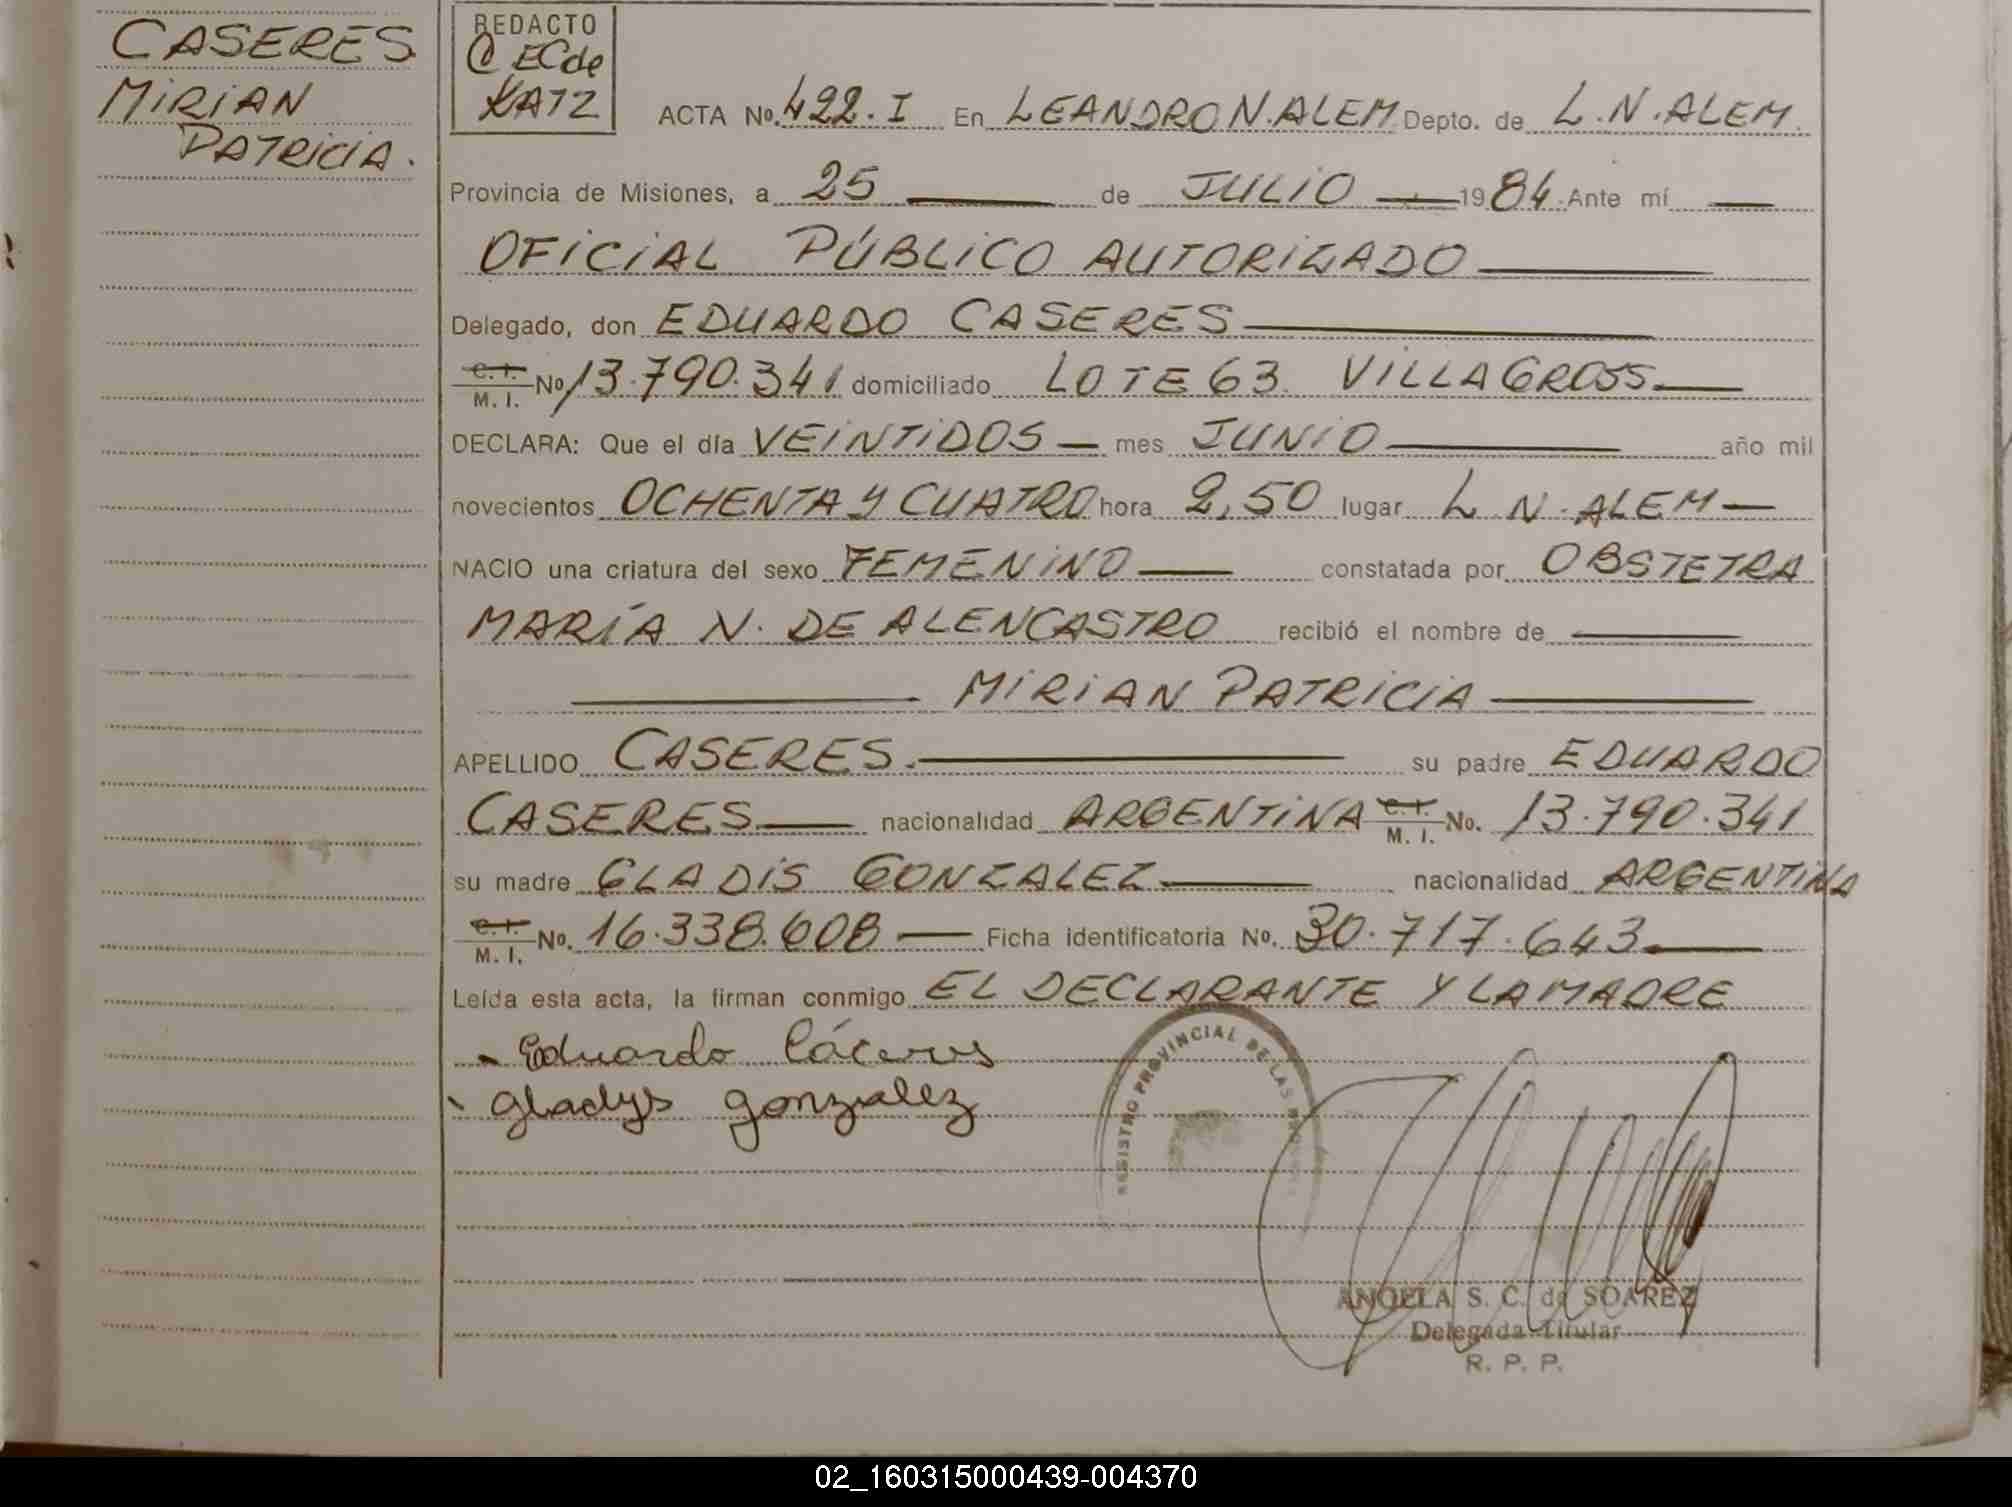 CASERES
MIRIAN
PATRICIA.
REDACTO
EC de
KATZ
ACTA No. 422.I En LEANDRO N. ALEM Depto. de L.N.ALEM.
Provincia de Misiones, a 25 de JULIO 1984 Ante mí
OFICIAL PÚBLICO AUTORIZADO
Delegado, don EDUARDO CASERES
C.I. M.I. No 13.790.341 domiciliado LOTE 63 VILLA GROSS
DECLARA: Que el día VEINTIDOS mes JUNIO año mil
novecientos OCHENTA Y CUATRO hora 2,50 lugar L N. ALEM
NACIO una criatura del sexo FEMENINO constatada por OBSTETRA
MARÍA N. DE ALENCASTRO recibió el nombre de
MIRIAN PATRICIA
APELLIDO CASERES. su padre EDUARDO
CASERES nacionalidad ARGENTINA C.I. M.I. No. 13.790.341
su madre GLADIS GONZALEZ nacionalidad ARGENTINA
C.I. M.I. No. 16.338.608 Ficha identificatoria No. 30.717.643
Leída esta acta, la firman conmigo EL DECLARANTE Y LA MADRE
Eduardo Cáceres
gladys gonzalez
REGISTRO PROVINCIAL DE LAS
ANGELA S. C. de SOAREZ
Delegada Titular
R. P. P.
02_160315000439-004370